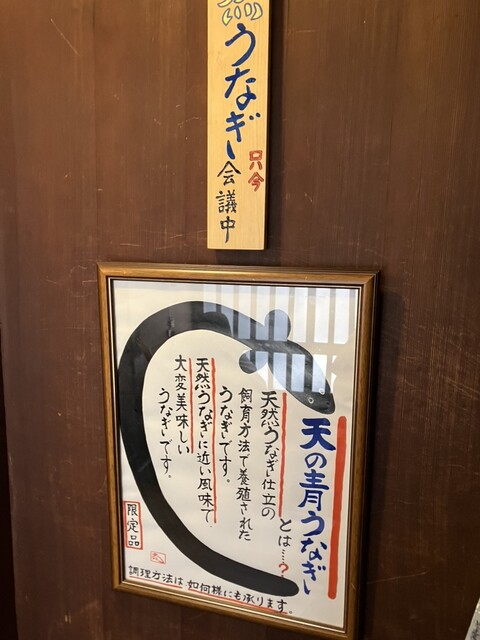 うなぎ
只今
会議中
天の青うなぎ
とは…?
天然うなぎ仕立の
飼育方法で養殖された
うなぎです。
天然うなぎに近い風味で
大変美味しい
うなぎです。
限定品
調理方法は、如何様にも承ります。